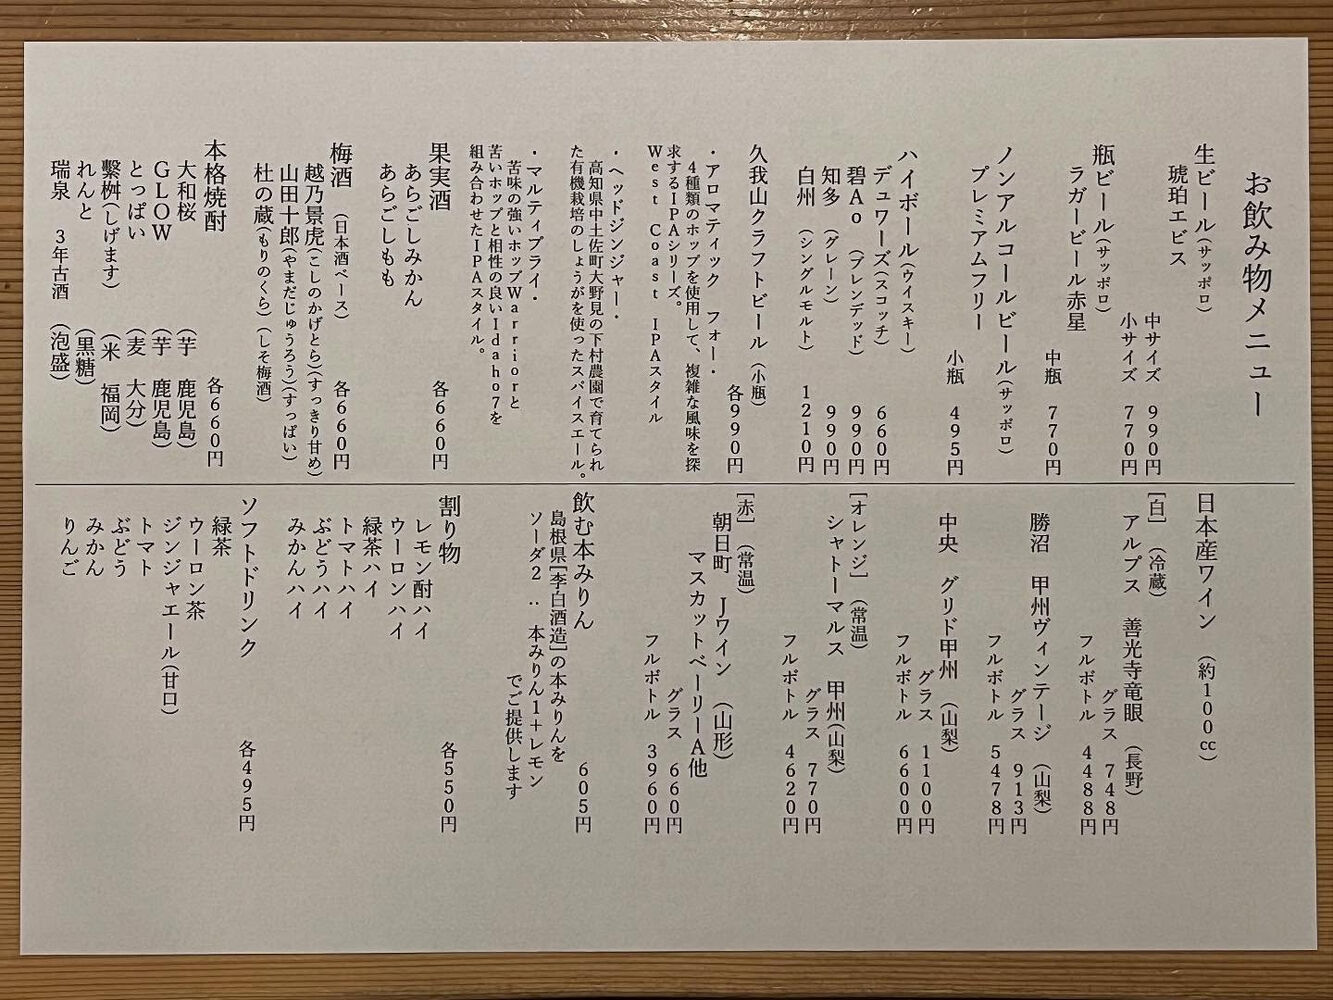 お飲み物メニュー
生ビール(サッポロ)
琥珀ヱビス
中サイズ 990円
小サイズ 770円
瓶ビール(サッポロ)
ラガービール赤星
中瓶 770円
ノンアルコールビール(サッポロ)
プレミアムフリー
小瓶 495円
ハイボール(ウイスキー)
デュワーズ(スコッチ) 660円
碧Ao (ブレンデッド) 990円
知多 (グレーン) 990円
白州 (シングルモルト) 1210円
久我山クラフトビール (小瓶)
各990円
・アロマティック フォー・
4種類のホップを使用して、複雑な風味を探
求するIPAシリーズ。
West Coast IPAスタイル
・ヘッドジンジャー・
高知県中土佐町大野見の下村農園で育てられ
た有機栽培のしょうがを使ったスパイスエール。
・マルティプライ・
苦味の強いホップWarriorと
苦いホップと相性の良いIdaho7を
組み合わせたIPAスタイル。
果実酒 各660円
あらごしみかん
あらごしもも
梅酒 (日本酒ベース) 各660円
越乃景虎(こしのかげとら)(すっきり甘め)
山田十郎(やまだじゅうろう)(すっぱい)
杜の蔵(もりのくら)(しそ梅酒)
本格焼酎 各660円
大和桜 (芋 鹿児島)
GLOW (芋 鹿児島)
とっぱい (麦 大分)
繋桝(しげます) (米 福岡)
れんと (黒糖)
瑞泉 3年古酒 (泡盛)
日本産ワイン (約100cc)
[白] (冷蔵)
アルプス 善光寺竜眼 (長野)
グラス 748円
フルボトル 4488円
勝沼 甲州ヴィンテージ (山梨)
グラス 913円
フルボトル 5478円
中央 グリド甲州 (山梨)
グラス 1100円
フルボトル 6600円
[オレンジ] (常温)
シャトーマルス 甲州(山梨)
グラス 770円
フルボトル 4620円
[赤] (常温)
朝日町 Jワイン (山形)
マスカットベーリーA他
グラス 660円
フルボトル 3960円
飲む本みりん 605円
島根県[李白酒造]の本みりんを
ソーダ2 : 本みりん1+レモン
でご提供します
割り物 各550円
レモン酎ハイ
ウーロンハイ
緑茶ハイ
トマトハイ
ぶどうハイ
みかんハイ
ソフトドリンク 各495円
緑茶
ウーロン茶
ジンジャエール(甘口)
トマト
ぶどう
みかん
りんご